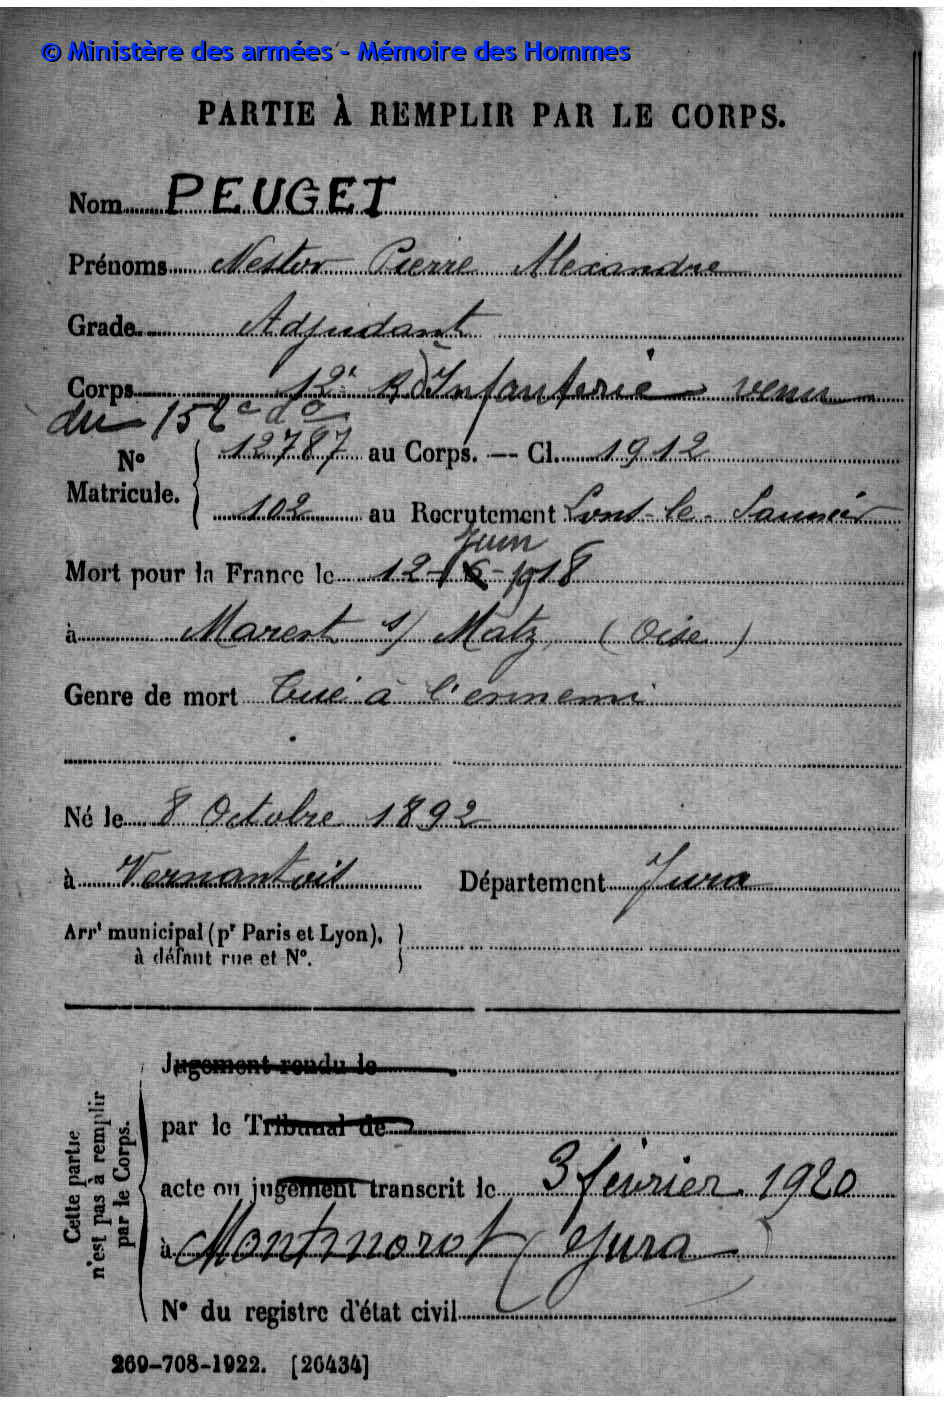 © Ministère des armées - Mémoire des Hommes
PARTIE À REMPLIR PAR LE CORPS.
Nom PEUGET
Prénoms Nestor Pierre Alexandre
Grade Adjudant
Corps 12e R. d'Infanterie venu
du 152e do
No Matricule. 12787 au Corps. — Cl. 1912
102 au Recrutement Lons-le-Saunier
Juin
Mort pour la France le 12-6-1918
à Marest s/ Matz (Oise)
Genre de mort Tué à l'ennemi
Né le 8 Octobre 1892
à Vernantois Département Jura
Arrt municipal (pr Paris et Lyon),
à défaut rue et No.
Cette partie n'est pas à remplir par le Corps.
Jugement rendu le
par le Tribunal de
acte ou jugement transcrit le 3 février 1920
à Montmorot (Jura)
No du registre d'état civil
269-708-1922. [26434]